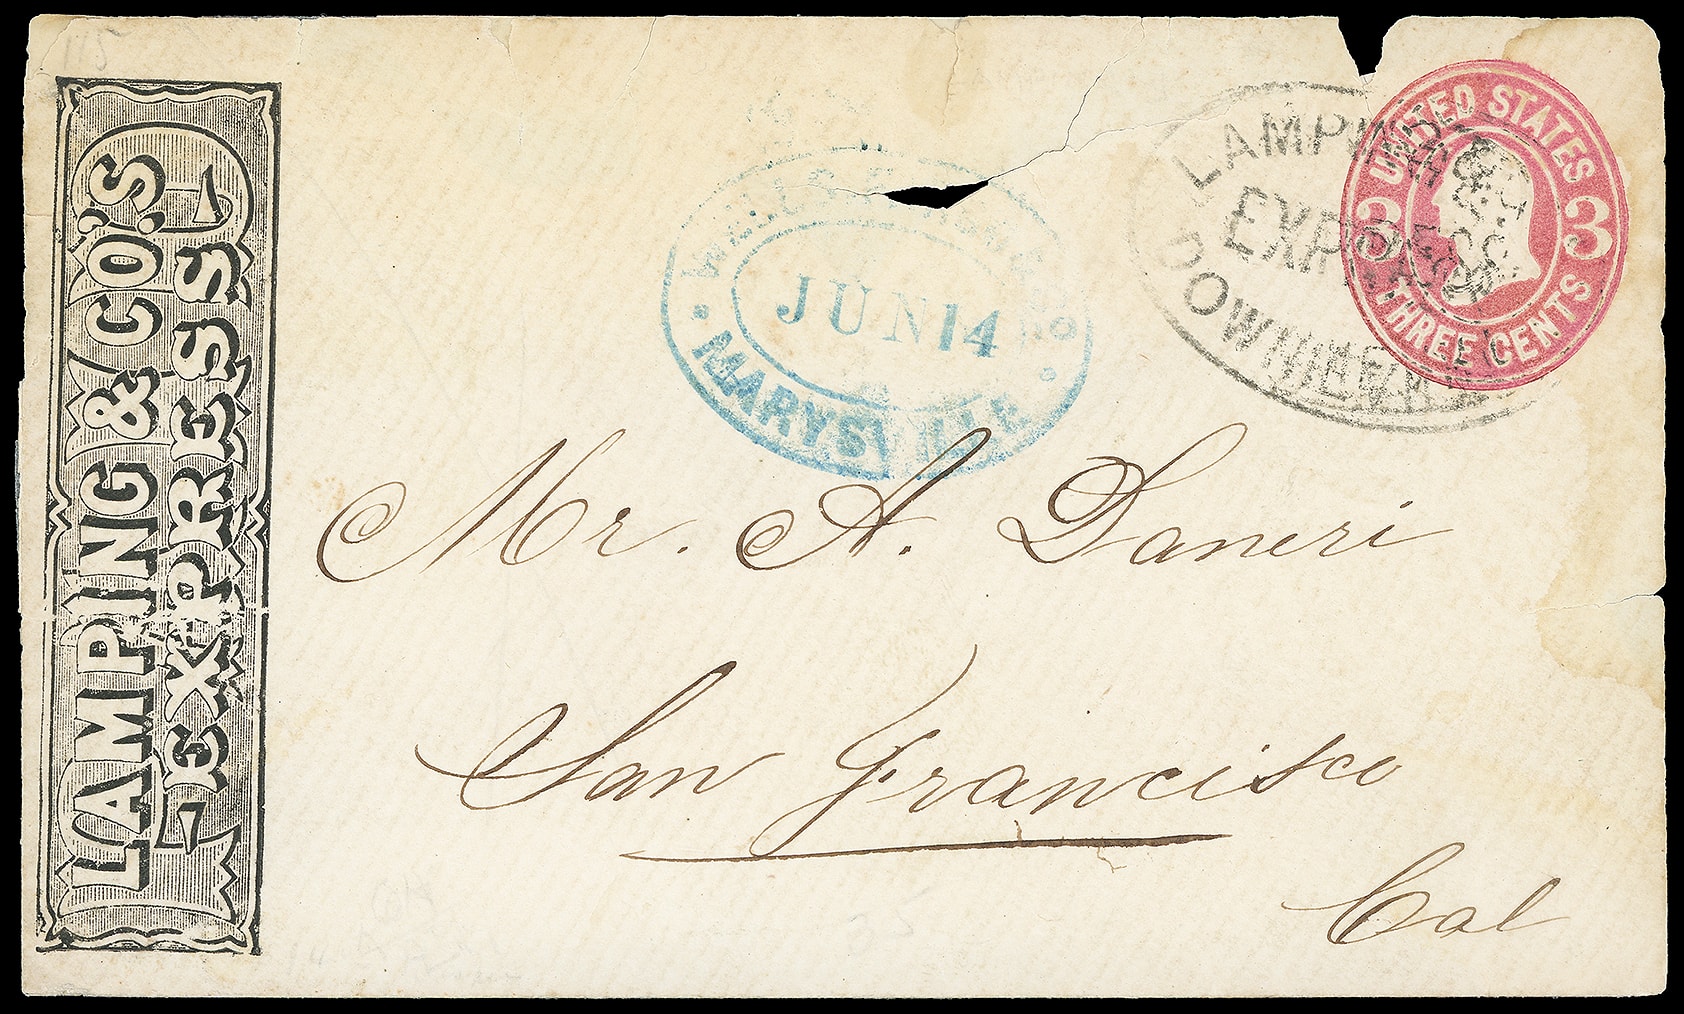 LAMPING & CO'S
EXPRESS
WELLS
JUN 14
MARYSVILLE
LAMPING
EXPRESS
UNITED STATES
3 3
THREE CENTS
Mr. A. Daneri
San Francisco
Cal